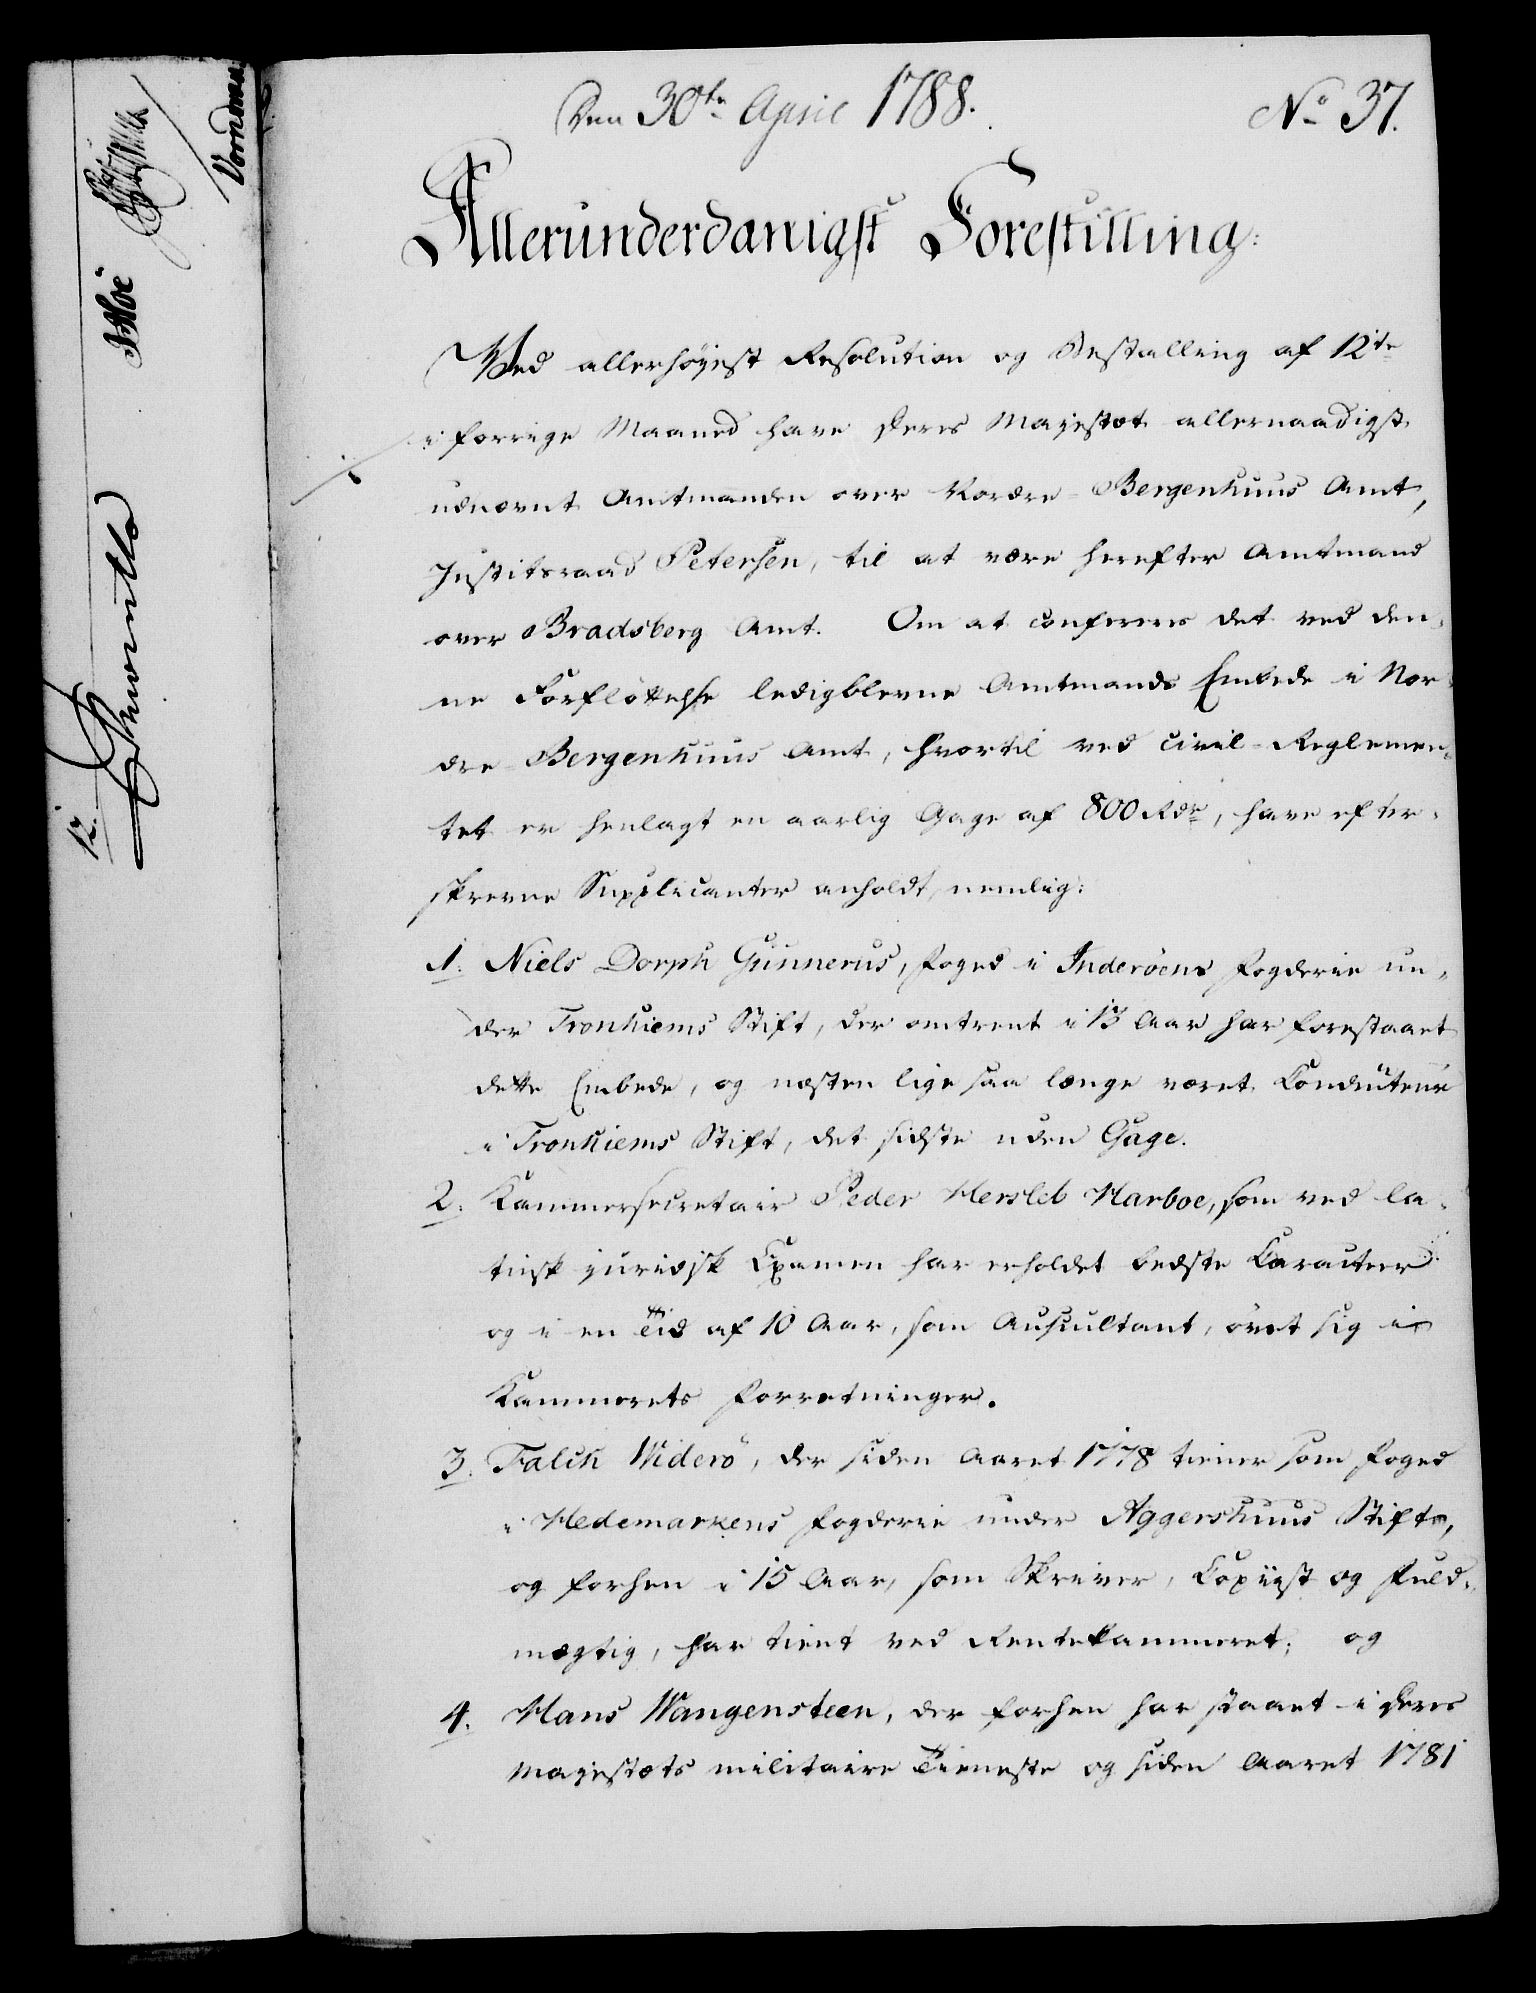 Den 30te April 1788.
No 37.
Allerunderdanigst Forestilling:
Ved allerhøyest Resolution og Bestalling af 12te
i forrige Maaned have Deres Majestæt allernaadigst
udnævnt Amtmanden over Nordre-Bergenhuus Amt,
Justitsraad Petersen, til at være herefter Amtmand
over Bradsberg Amt. Om at conferres det ved den-
ne Forfløttelse ledigblevne Amtmands Embede i Nor-
dre-Bergenhuus Amt, hvortil ved Civil-Reglemen-
tet er henlagt en aarlig Gage af 800 Rdr, have efter-
skrevne Supplicanter anholdt, nemlig:
1. Niels Dorph Gunnerus, Foged i Inderøens Fogderie un-
der Tronhiems Stift, der omtrent i 13 Aar har forestaaet
dette Embede, og næsten lige saa længe været Conducteur
i Tronhiems Stift, det sidste uden Gage.
2. Kammersecretair Peder Hersleb Harboe, som ved la-
tinsk juridisk Examen har erholdet bedste Caracteer
og i en Tid af 10 Aar, som Auscultant, øvet sig i
Kammerets Forretninger.
3. Falch Widerö, der siden Aaret 1778 tiener som Foged
i Hedemarkens Fogderie under Aggershuus Stift,
og forhen i 15 Aar, som Skriver, Copiist og Fuld-
mægtig, har tient ved Rentekammeret; og
4. Hans Wangensteen, der forhen har staaet i Deres
Majestæts militaire Tieneste og siden Aaret 1781
12.